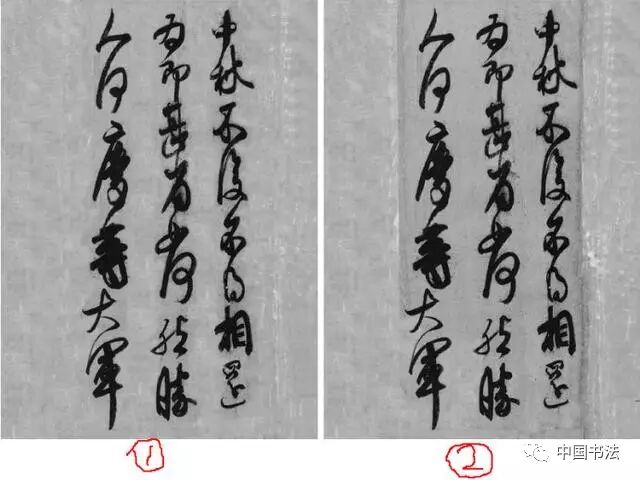 中秋不復不得相還
為即甚省如何然勝
人何慶等大軍
中秋不復不得相還
為即甚省如何然勝
人何慶等大軍
1
2
中国书法